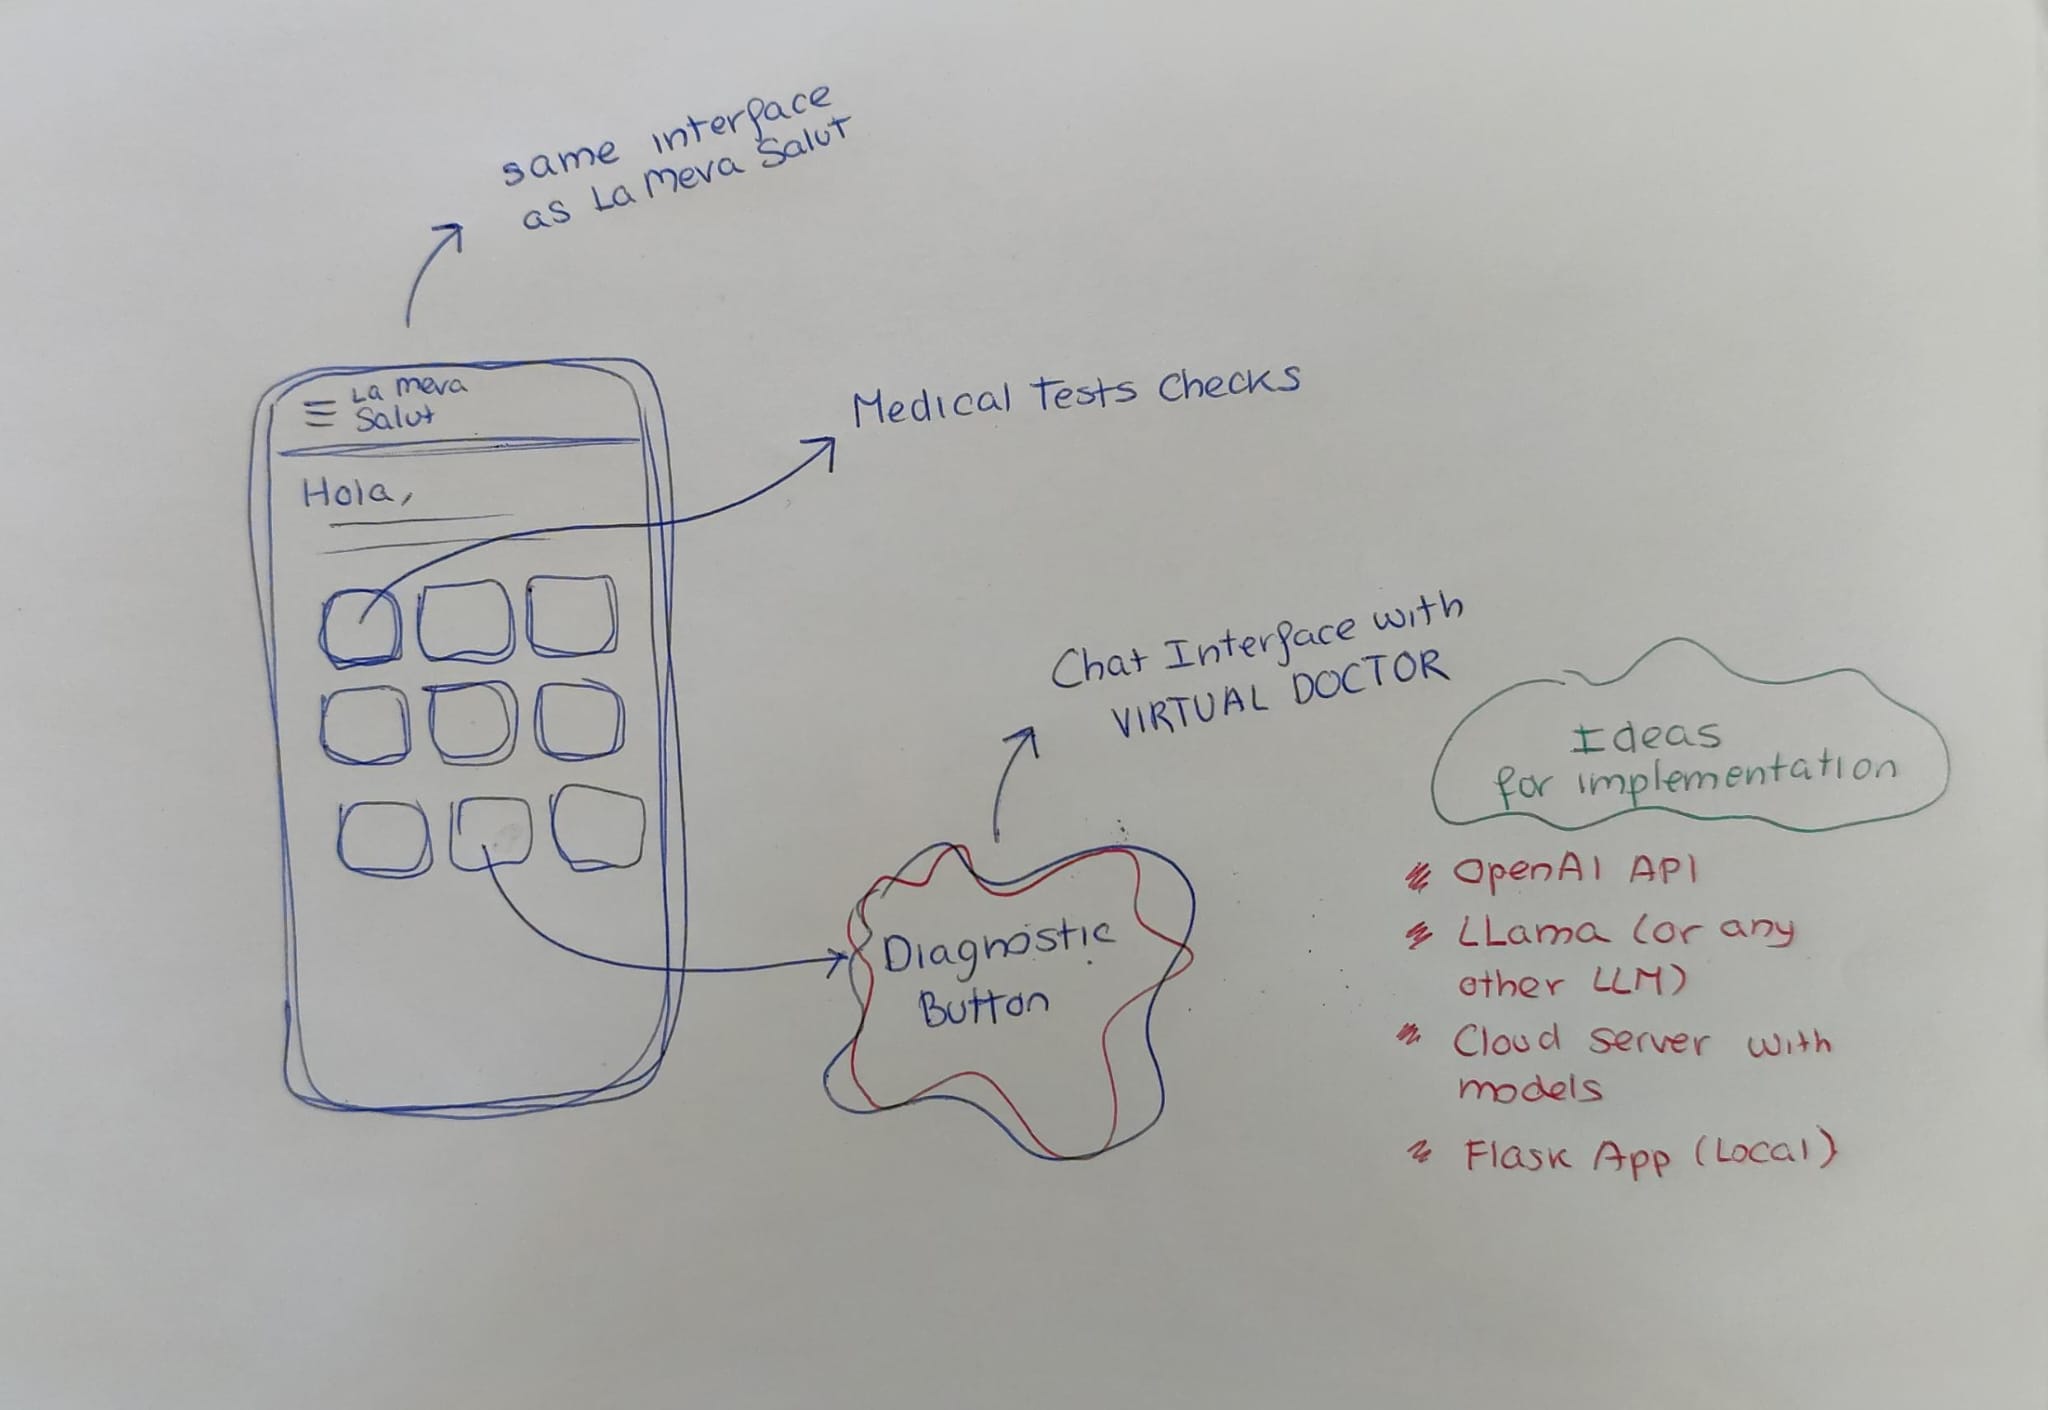 same interface
as La Meva Salut
La Meva
Salut
Hola,
Medical Tests Checks
Chat Interface with
VIRTUAL DOCTOR
Diagnostic
Button
Ideas
for implementation
OpenAI API
LLama (or any
other LLM)
Cloud server with
models
Flask App (Local)